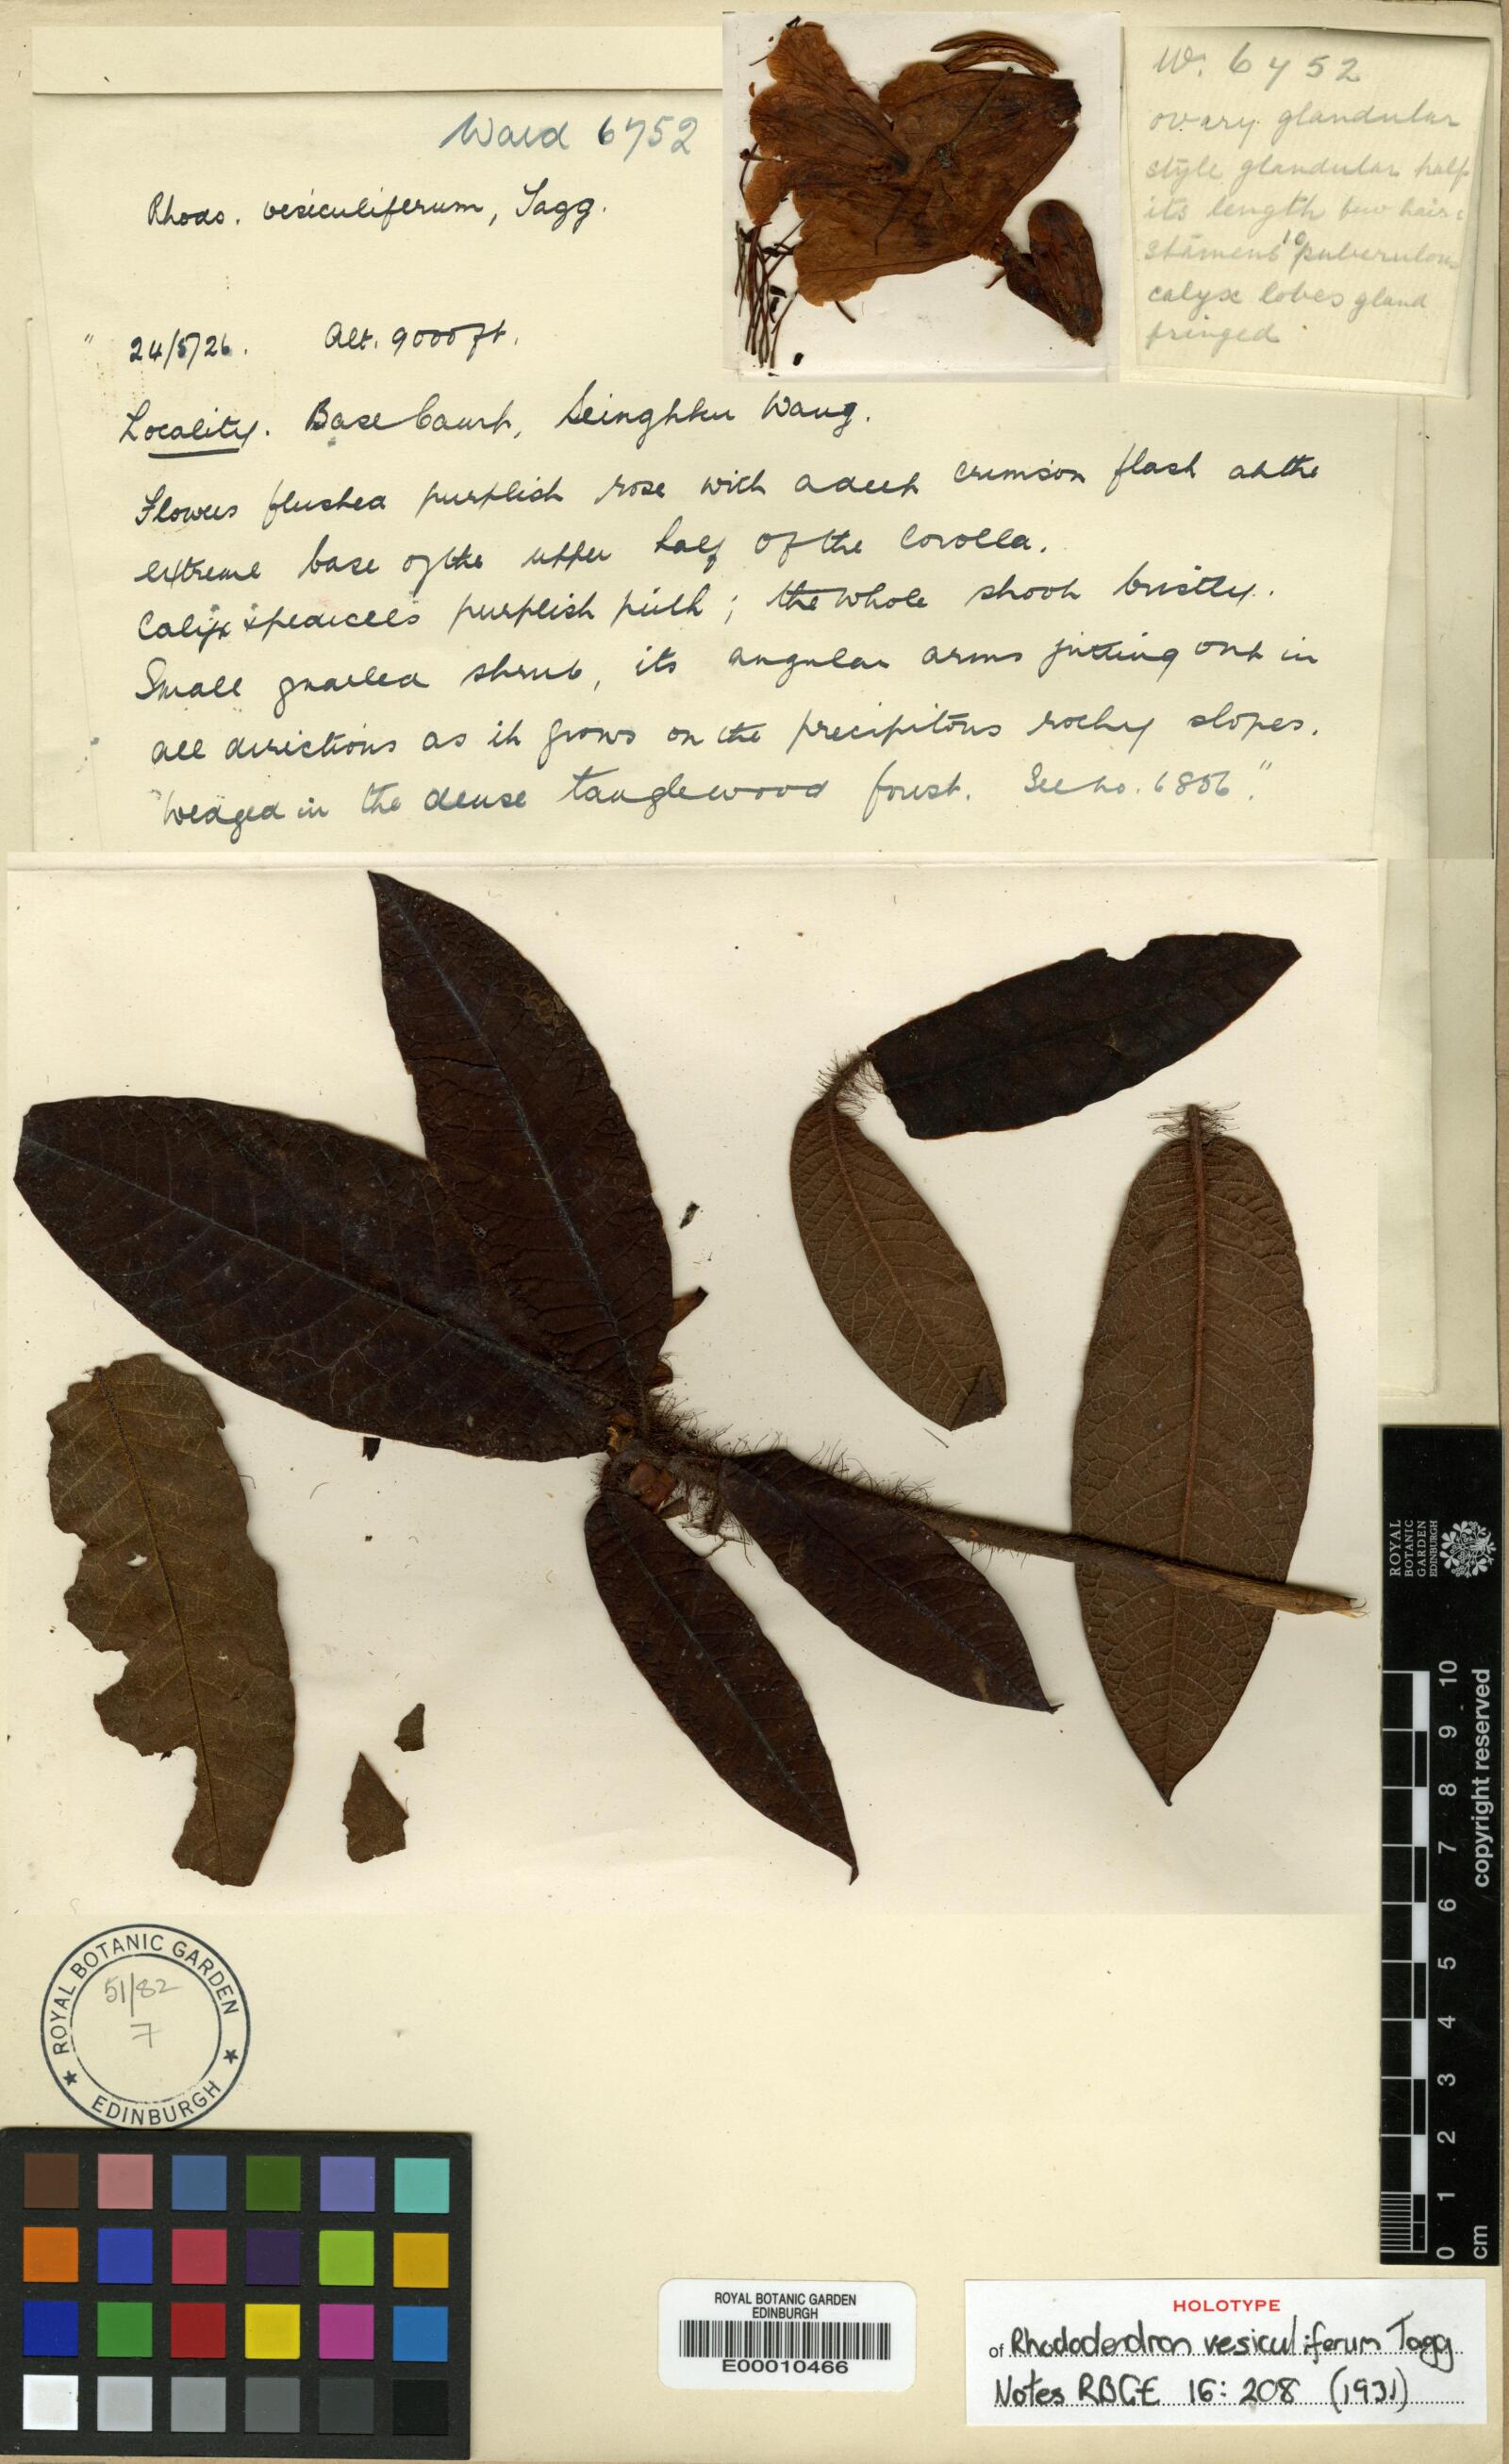 Ward 6752
Rhodo. vesiculiferum, Tagg.
" 24/5/26. Alt. 9000 ft.
Locality. Base Camp, Seinghku Wang.
Flowers flushed purplish rose with a deep crimson flash at the
extreme base of the upper half of the Corolla.
Calyx & pedicels purplish pink; the whole shoot bristly.
Small gnarled shrub, its angular arms jutting out in
all directions as it grows on the precipitous rocky slopes.
Wedged in the dense tanglewood forest. See no. 6806."
W. 6752
ovary glandular
style glandular half
its length few hairs
stamens 10 puberulous
calyx lobes gland
fringed
ROYAL BOTANIC GARDEN
EDINBURGH
51/82
7
ROYAL
BOTANIC
GARDEN
EDINBURGH
10
9
8
7
6
5
4
3
2
1
0
cm
copyright reserved
ROYAL BOTANIC GARDEN
EDINBURGH
E00010466
HOLOTYPE
of Rhododendron vesiculiferum Tagg
Notes RBGE 16: 208 (1931)